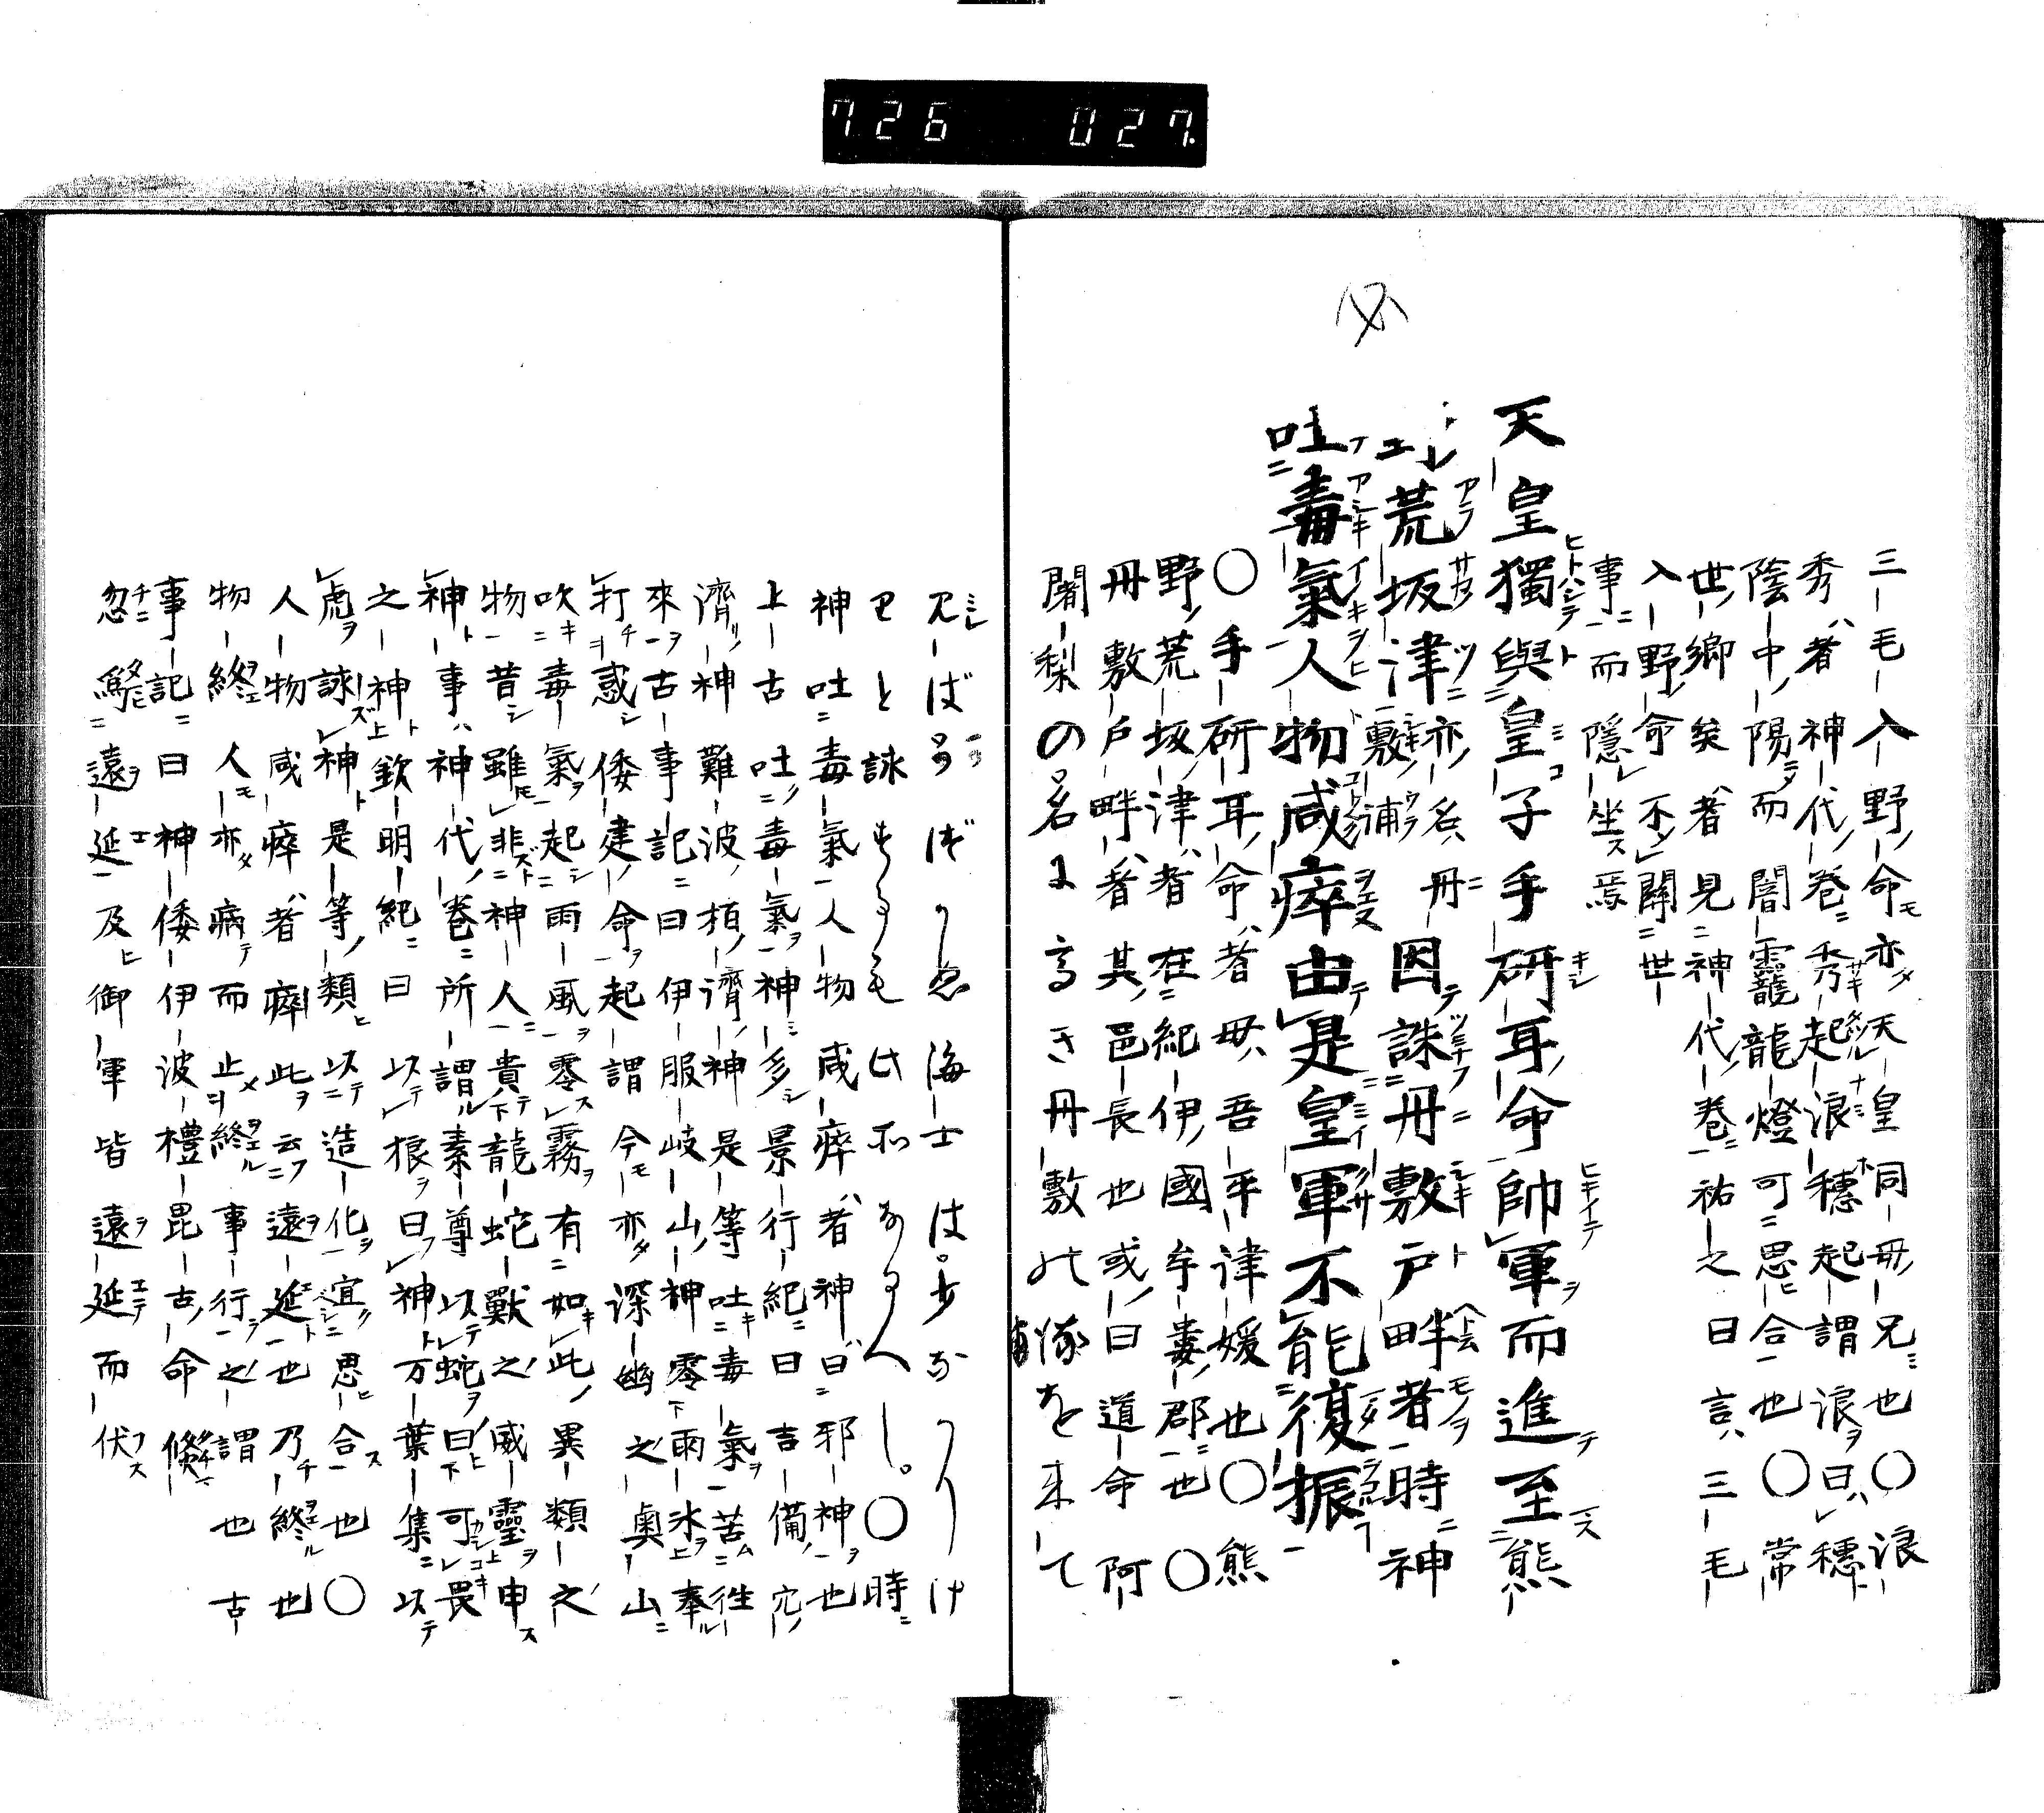 726 027
三毛入野命亦天皇同母兄也〇浪
秀者神代卷秀起浪穗起謂浪曰穗
陰中陽而闇龗龍燈可思合也〇常
世鄉矣者見神代卷祐之曰言三毛
入野命不關世
事而隱坐焉
天皇獨與皇子手研耳命帥軍而進至熊
荒坂津亦名丹敷浦因誅丹敷戶畔者時神
吐毒氣人物咸瘁由是皇軍不能復振
〇手研耳命者母吾平津媛也〇熊
野荒坂津者在紀伊國牟婁郡也〇
丹敷戶畔者其邑長也或曰道命阿
闍梨の名に高き丹敷の
神吐毒氣人物咸瘁者神曰邪神也
上古吐毒氣神多景行紀曰吉備穴
濟神難波柏濟神是等吐毒氣苦往
來古事記曰伊服岐山神零雨氷奉
打惑倭建命起謂今亦深幽之奧山
吹毒氣起雨風零霧有如此異類之
物昔雖非神人貴龍蛇獸之威靈申
神事神代卷所謂素尊以蛇曰可畏
之神欽明紀曰以狼曰神万葉集以
虎詠神是等類以造化宜思合也〇
人物咸瘁者瘁此云遠延也乃終也
物終人亦病而止終事行之謂也古
事記曰神倭伊波禮毘古命倐
忽爲遠延及御軍皆遠延而伏